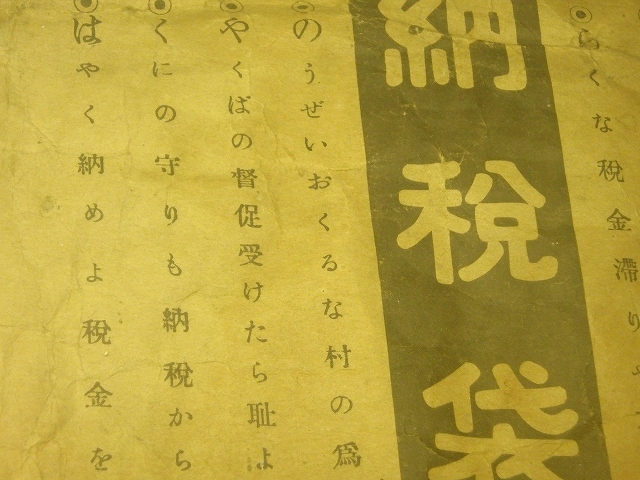 らくな税金滞り
納税袋
のうぜいおくるな村の爲
やくばの督促受けたら耻よ
くにの守りも納税から
はやく納めよ税金を